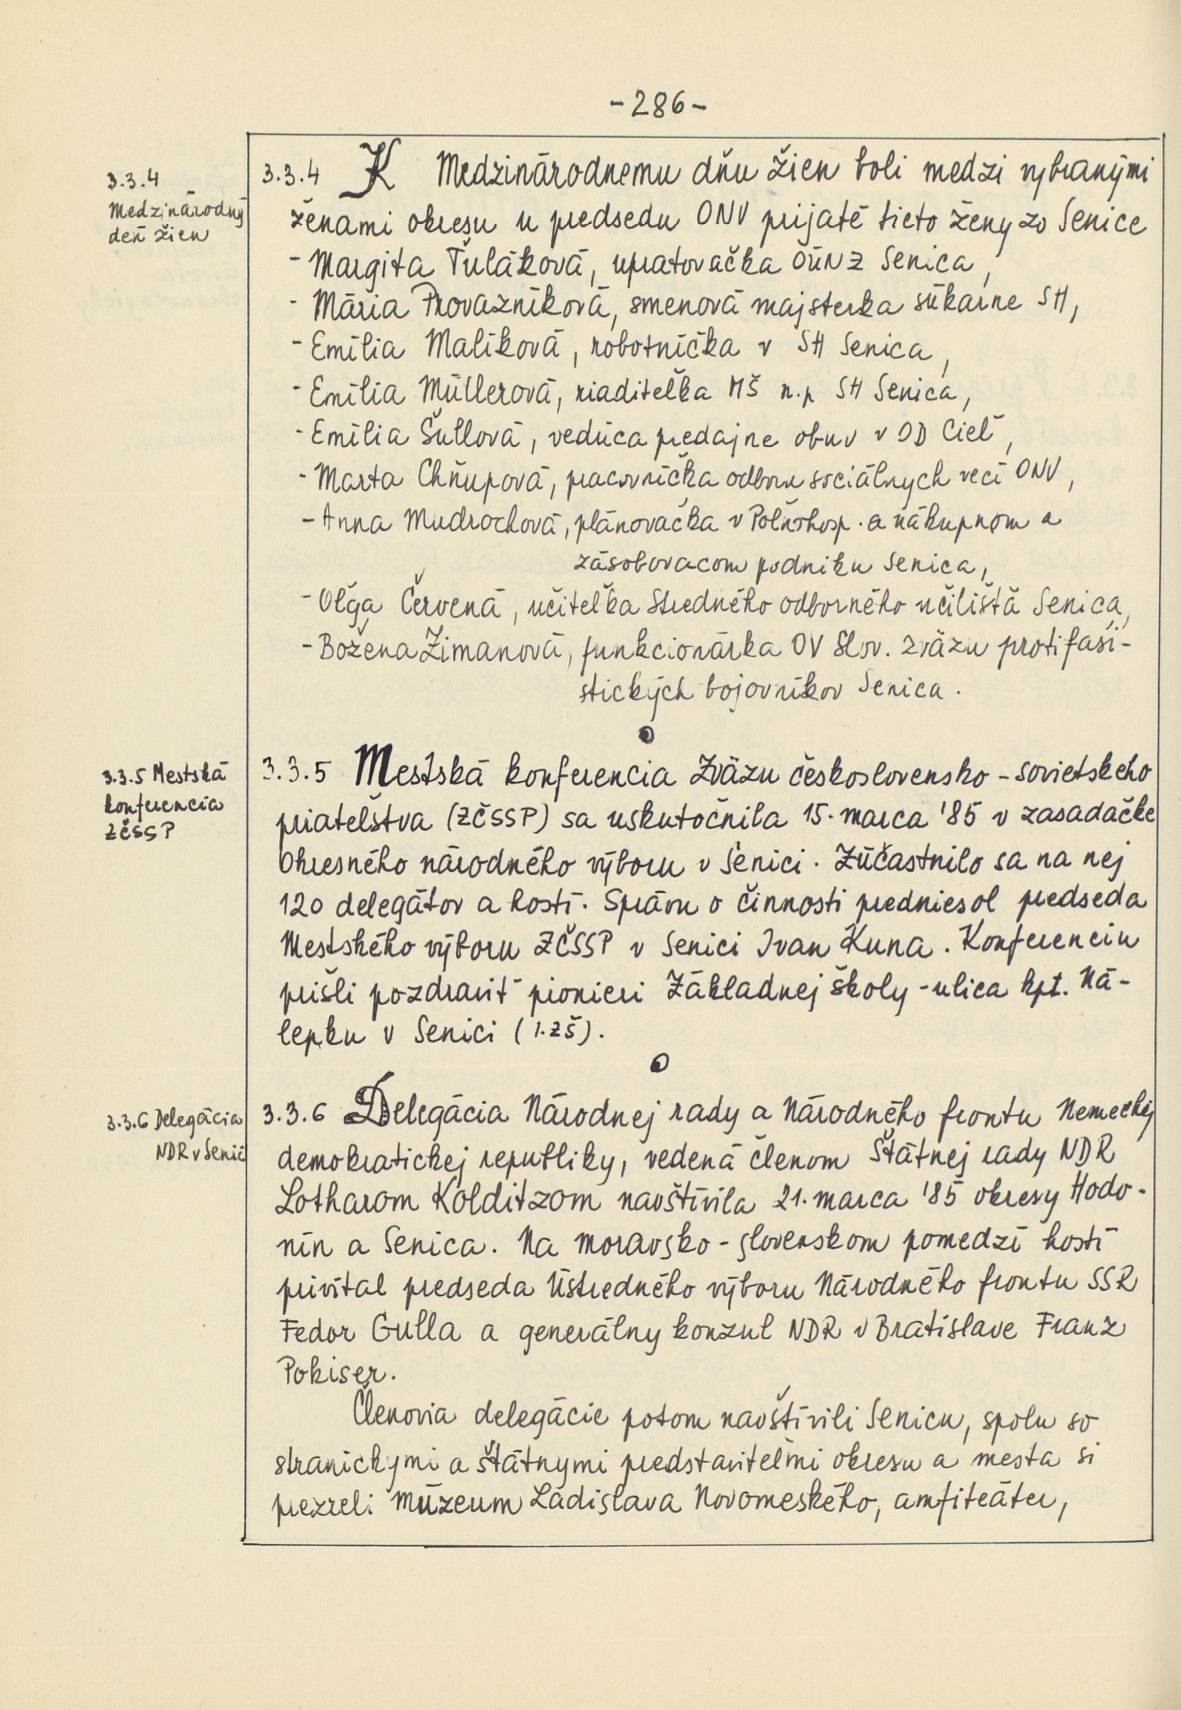 -286-
3.3.4
Medzinárodný
deň žien
3.3.4 K Medzinárodnemu dňu žien boli medzi vybranými
ženami okresu u predsedu ONV prijaté tieto ženy zo Senice
- Margita Ťuláková, upratovačka OÚNZ Senica,
- Mária Provazníková, smenová majsterka súkarne SH,
- Emília Malíková, robotníčka v SH Senica,
- Emília Müllerová, riaditeľka MŠ n.p SH Senica,
- Emília Šullová, vedúca predajne obuv v OD Cieľ,
- Marta Chňupová, pracovníčka odboru sociálnych vecí ONV,
- Anna Mudrochová, plánovačka v Poľnohosp. a nákupnom a
zásobovacom podniku Senica,
- Oľga Červená, učiteľka Stredného odborného učilištá Senica,
- Božena Zimanová, funkcionárka OV Slov. zväzu protifaši-
stických bojovníkov Senica.
3.3.5 Mestská
konferencia
ZČSSP
3.3.5 Mestská konferencia Zväzu československo-sovietskeho
priateľstva (ZČSSP) sa uskutočnila 15. marca '85 v zasadačke
Okresného národného výboru v Senici. Zúčastnilo sa na nej
120 delegátov a hostí. Správu o činnosti predniesol predseda
Mestského výboru ZČSSP v Senici Ivan Kuna. Konferenciu
prišli pozdraviť pionieri Základnej školy - ulica kpt. Ná-
lepku v Senici (1.ZŠ).
3.3.6 Delegácia
NDR v Senic
3.3.6 Delegácia Národnej rady a Národného frontu Nemeckej
demokratickej republiky, vedená členom Štátnej rady NDR
Lotharom Kolditzom navštívila 21. marca '85 okresy Hodo-
nín a Senica. Na moravsko-slovenskom pomedzí hostí
privítal predseda Ústredného výboru Národného frontu SSR
Fedor Gulla a generálny konzul NDR v Bratislave Franz
Pokiser.
Členovia delegácie potom navštívili Senicu, spolu so
stranickymi a štátnymi predstaviteľmi okresu a mesta si
prezreli múzeum Ladislava Novomeského, amfiteáter,